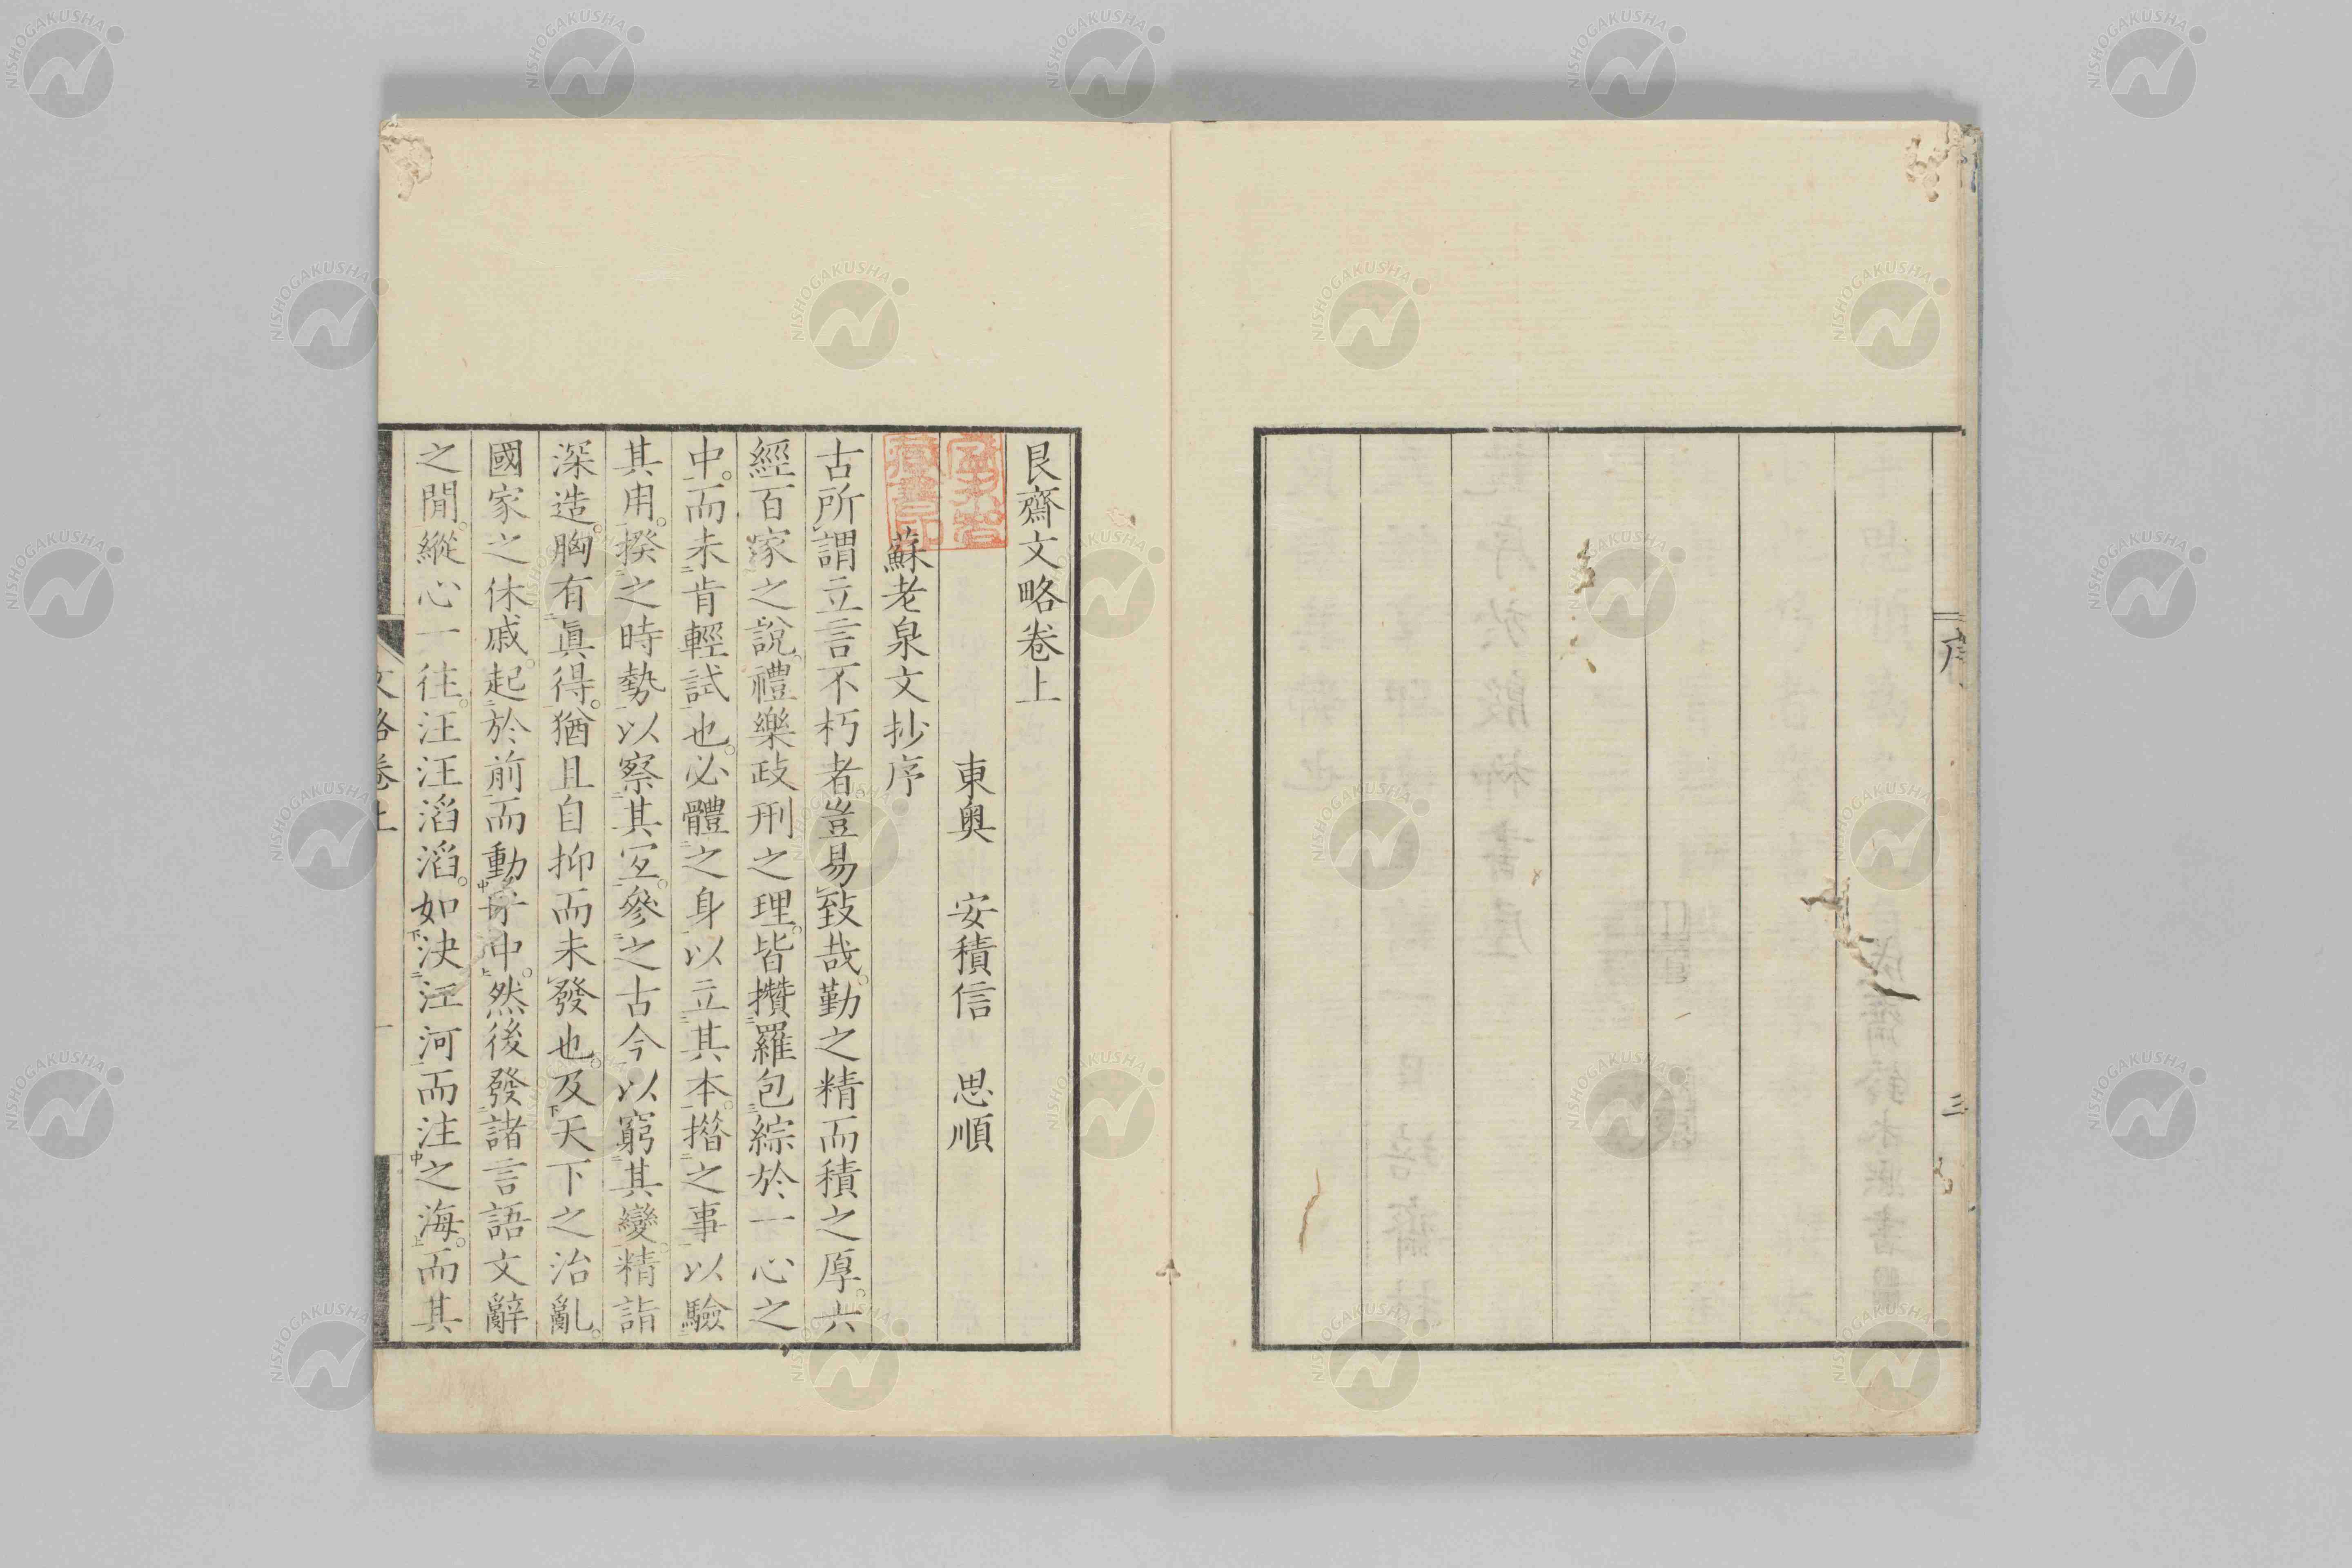 序
三
艮齋文略卷上
東奥 安積信 思順
蘇老泉文抄序
古所謂立言不朽者豈易致哉。勤之精而積之厚。六
經百家之說。禮樂政刑之理。皆攢羅包綜於一心之
中。而未肯輕試也。必體之身以立其本。揩之事以驗
其用。揆之時勢以察其宜。參之古今以窮其變。精詣
深造。胸有眞得。猶且自抑而未發也。及天下之治亂。
國家之休戚。起於前而動乎中。然後發諸言語文辭
之閒。縱心一往。汪汪滔滔。如決江河而注之海。而其
文略卷上
一
NISHOGAKUSHA